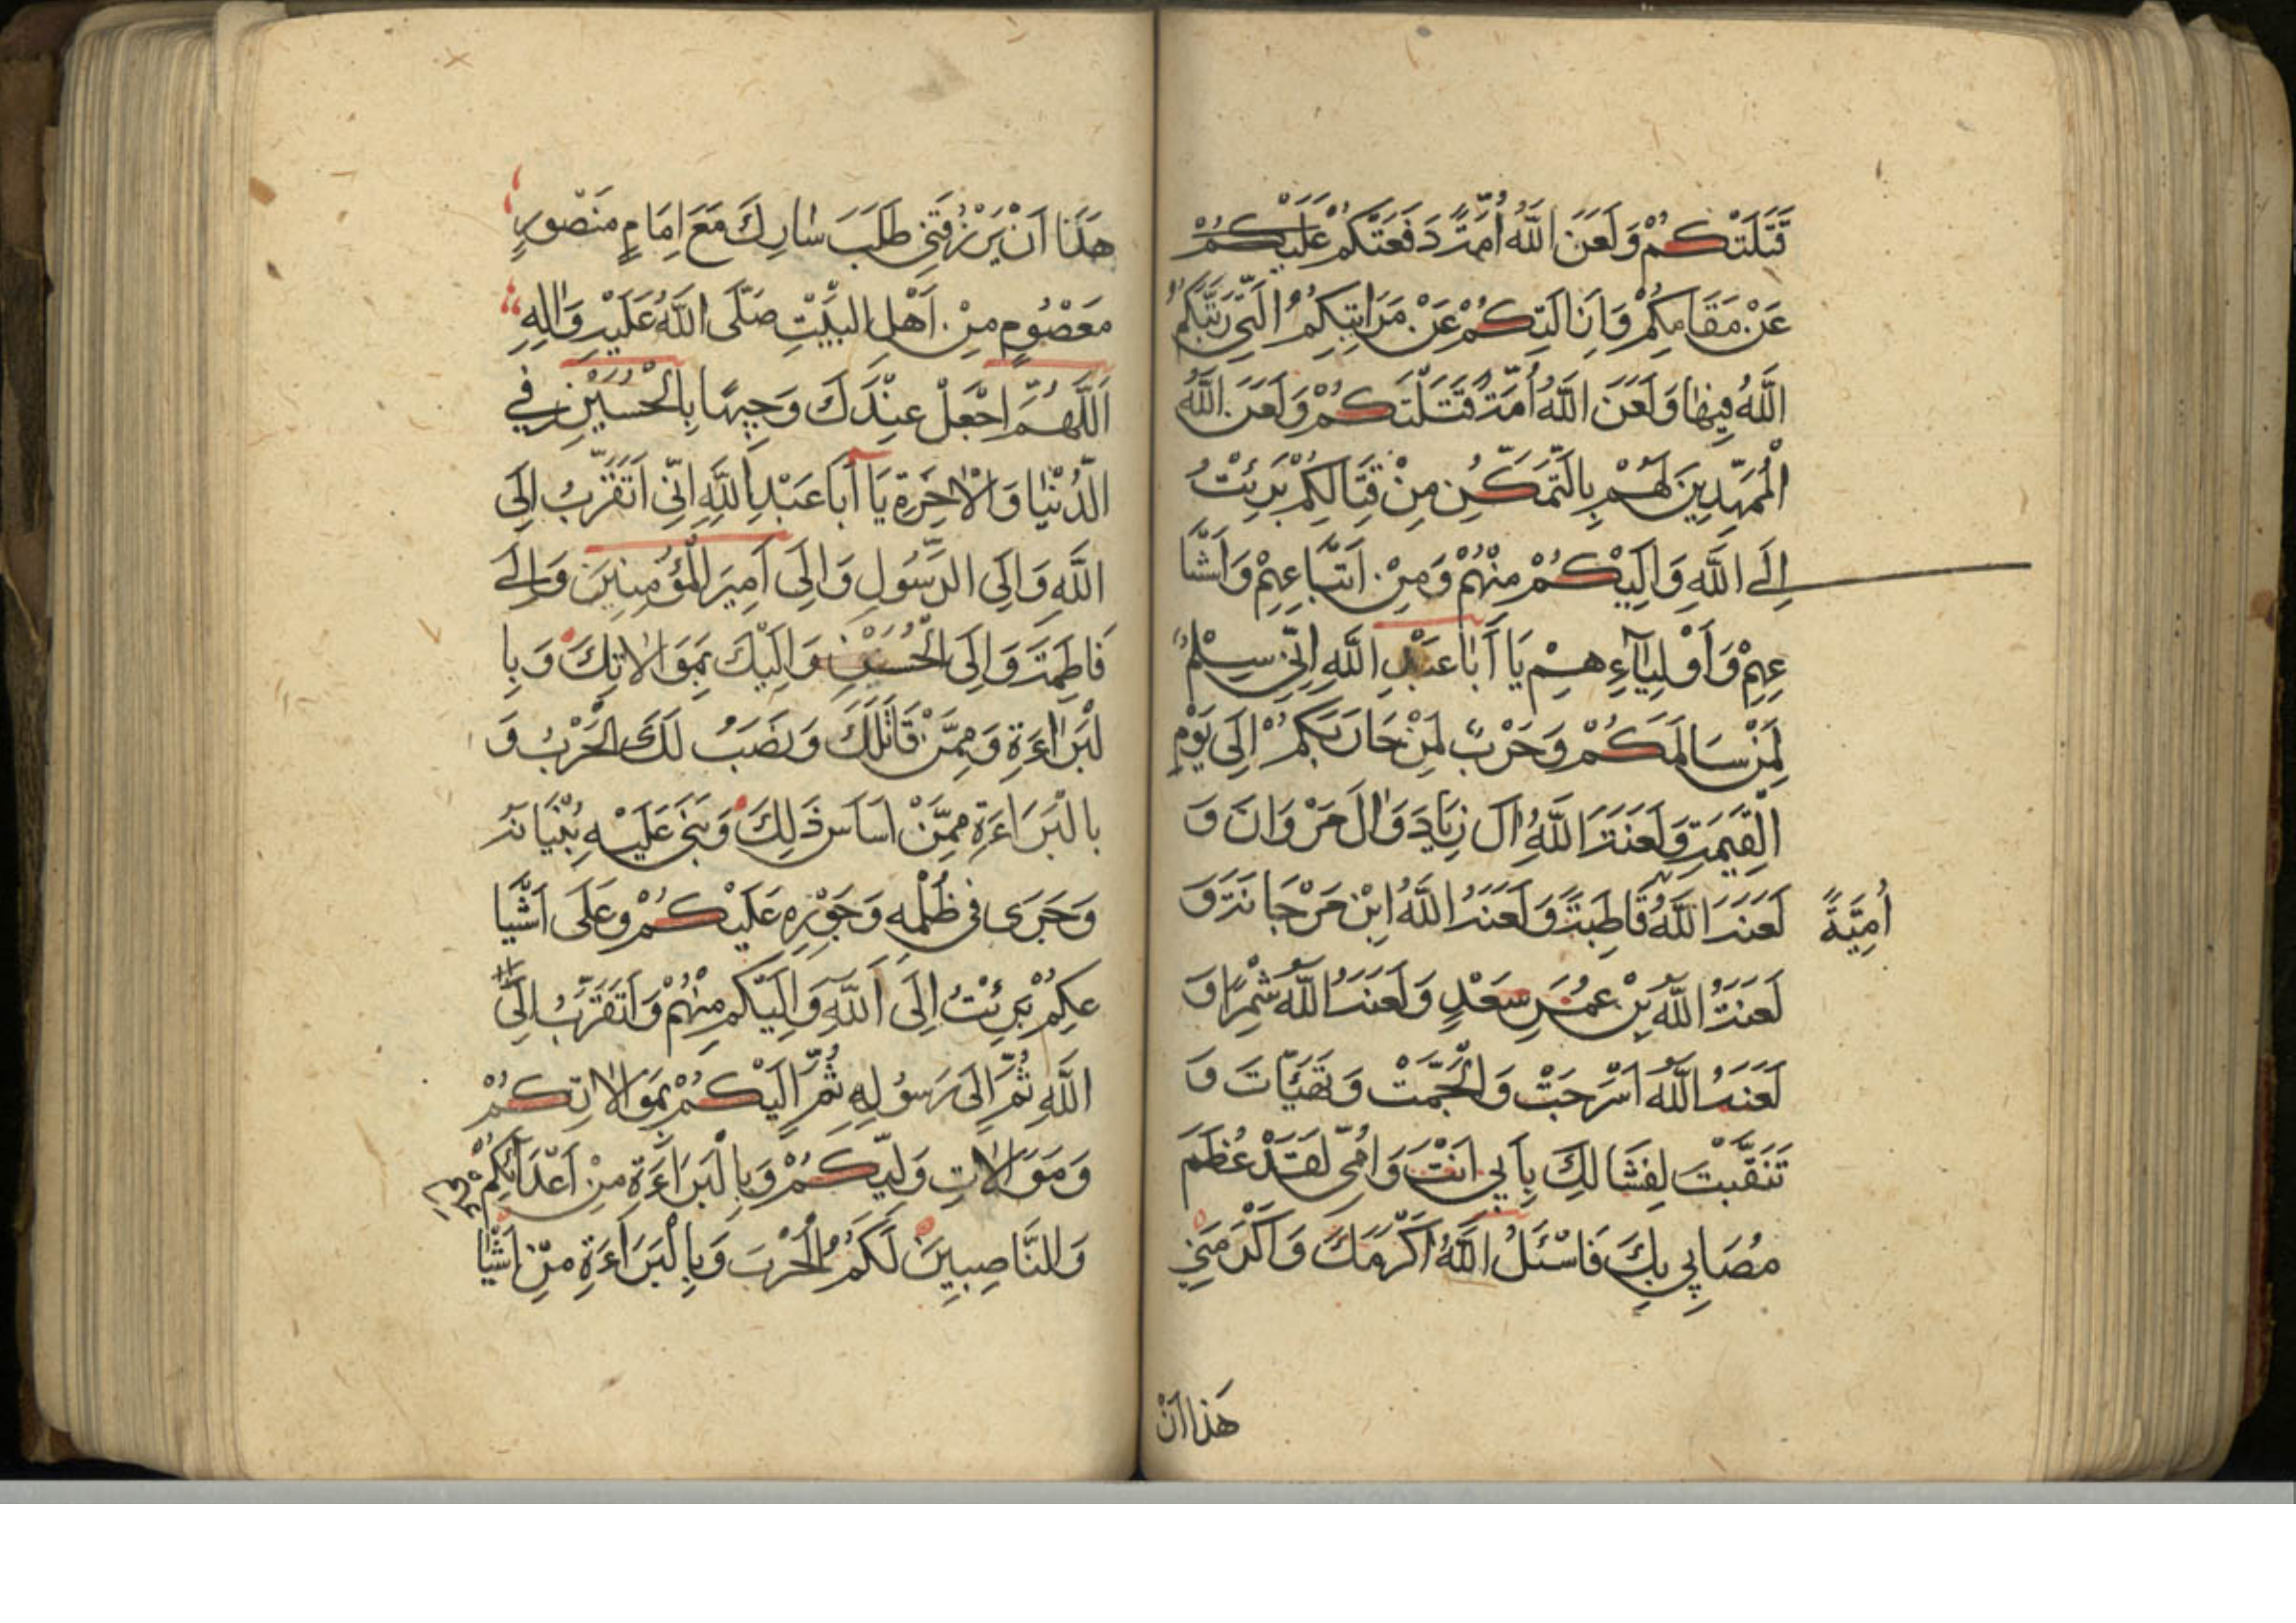 قَتَلَتْكُمْ وَلَعَنَ اللّٰهُ اُمَّتً دَفَعَتْكُمْ عَلَيْكُمْ
عَنْ مَقَامِكُمْ وَاَزَالَتِكُمْ عَنْ مَرَاتِبِكِمُ الَّتِي رَتَّبَكُمُ
اللّٰهُ فِيهٰا وَلَعَنَ اللّٰهُ اُمَّةً قَتَلَتْكُمْ وَلَعَنَ اللّٰهُ
الْمُمَهِّدِينَ لَهُمْ بِالتَّمَكُّنِ مِنْ قِتَالِكُمْ بَرِئْتُ
اِلَى اللّٰهِ وَاِلَيْكُمْ مِنْهُمْ وَمِنْ اَتْبَاعِهِمْ وَاَشْيَا
عِهِمْ وَاَوْلِيَآءِهِمْ يَا اَبَا عَبْدِ اللّٰهِ اِنِّي سِلْمٌ
لِمَنْ سَالَمَكُمْ وَحَرْبٌ لِمَنْ حَارَبَكُمْ اِلَى يَوْمِ
الْقِيٰمَةِ وَلَعَنَةَ اللّٰهُ اٰلَ زِيَادَ وَاٰلَ مَرْوَانَ وَ
لَعَنَهَ اللّٰهُ قَاطِبَةً وَلَعَنَهُ اللّٰهُ ابْنَ مَرْجَانَةَ وَ
اُمِيَّةً
لَعَنَتُ اللّٰهُ بِنْ عُمَرَ سَعْدٍ وَلَعَنَهُ اللّٰهُ شِمْرًا وَ
لَعَنَهُ اللّٰهُ اَسْرَجَتْ وَالْجَمَتْ وَتَهَيَّاَتَ وَ
تَنَقَّبَتْ لِقِتَالِكَ بِاَبِي اَنْتَ وَاُمِّي لَقَدْ عَظُمَ
مُصَابِي بِكَ فَاسْئَلُ اللّٰهُ اَكْرَمَكَ وَاَكْرَمَنِي
هَذَا اَنْ
هَذَا اَنْ يَرْزُقَنِي طَلَبَ ثٰارِكَ مَعَ اِمَامٍ مَنْصُورٍ
مَعْصُومٍ مِنْ اَهْلِ الْبَيْتِ صَلَّى اللّٰهُ عَلَيْهِ وَاٰلِهِ
اَللّٰهُمَّ اجْعَلْ عِنْدَكَ وَجِيهًا بِالْحُسَيْنِ فِي
الدُّنْيَا وَالْاٰخِرَةِ يَا اَبَا عَبْدِ اللّٰهِ اِنِّي اَتَقَرَّبُ اِلَى
اللّٰهِ وَاِلَى الرَّسُولِ وَاِلَى اَمِيرَ الْمُؤْمِنِينَ وَاِلَى
فَاطِمَةَ وَاِلَى الْحُسَيْنِ وَاِلَيْكَ بِمَوَالَاتِكَ وَبِا
لْبَرَاءَةِ وَمِمَّنْ قَاتَلَكَ وَنَصَبُ لَكَ الْحَرْبُ وَ
بِالْبَرَاءَةِ مِمَّنْ اَسَاسَ ذٰلِكَ وَبَنَى عَلَيْهِ بُنْيَانَهُ
وَجَرَى فِي ظُلْمِهِ وَجَوْرِهِ عَلَيْكُمْ وَعَلَى اَشْيَا
عِكِمُ بَرِئْتُ اِلَى اللّٰهِ وَاِلَيْكُمْ مِنْهُمْ وَاَتَقَرَّبُ اِلَى
اللّٰهِ ثُمَّ اِلَى رَسُولِهِ ثُمَّ اِلَيْكُمْ بِمَوَالَاتِكُمْ
وَمَوَالَاتِ وَلِيِّكُمْ وَبِالْبَرَاءَةِ مِنْ اَعْدَائِكُمْ
وَالنَّاصِبِينَ لَكُمُ الْحَرْبَ وَبِالْبَرَاءَةِ مِنْ اَشْيَا